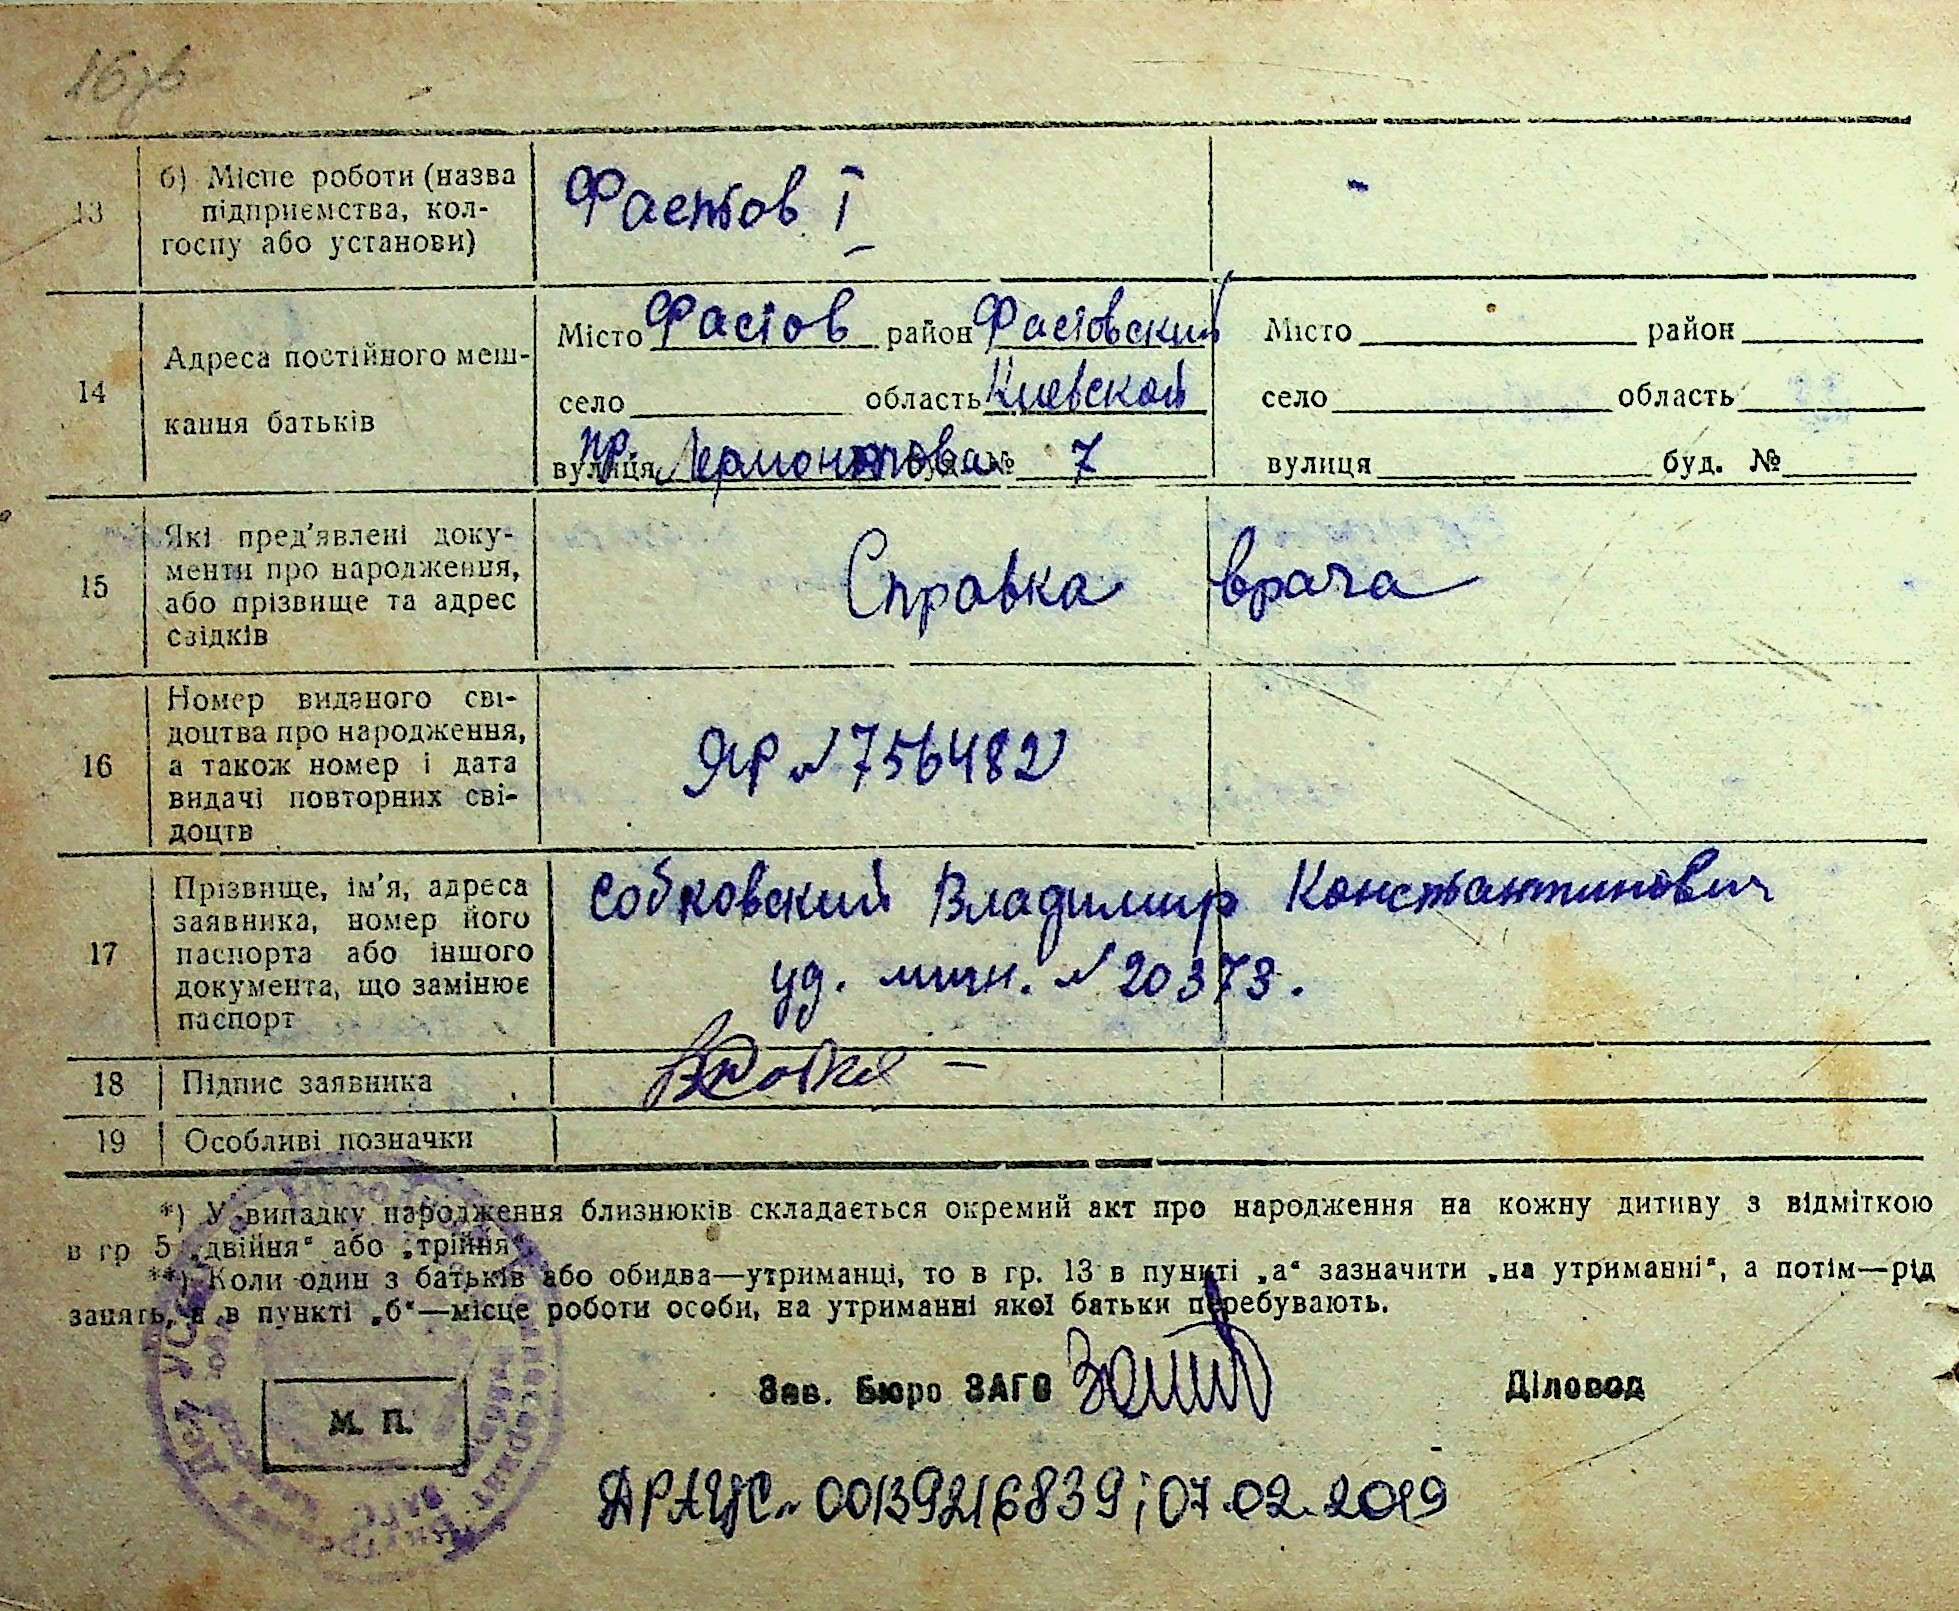 16 зв
13 б) Місце роботи (назва Фастов I -
підприємства, кол-
госпу або установи)
14 Адреса постійного меш-
кання батьків
Місто Фастов район Фастовский Місто район
село область Киевской село область
вулиця пр. Лермонтова № 7 вулиця буд. №
15 Які пред'явлені доку-
менти про народження,
або прізвище та адрес
свідків
Справка врача
16 Номер виданого сві-
доцтва про народження,
а також номер і дата
видачі повторних сві-
доцтв
ЯР № 756482
17 Прізвище, ім'я, адреса
заявника, номер його
паспорта або іншого
документа, що замінює
паспорт
Собковский Владимир Константинович
уд. личн. № 20373.
18 Підпис заявника
19 Особливі позначки
*) У випадку народження близнюків складається окремий акт про народження на кожну дитину з відміткою
в гр 5 „двійня“ або „трійня“.
**) Коли один з батьків або обидва—утриманці, то в гр. 13 в пункті „а“ зазначити „на утриманні“, а потім—рід
занять, а в пункті „б“—місце роботи особи, на утриманні якої батьки перебувають.
Зав. Бюро ЗАГС Діловод
М. П.
ДРАЦС № 00139216839; 07.02.2019